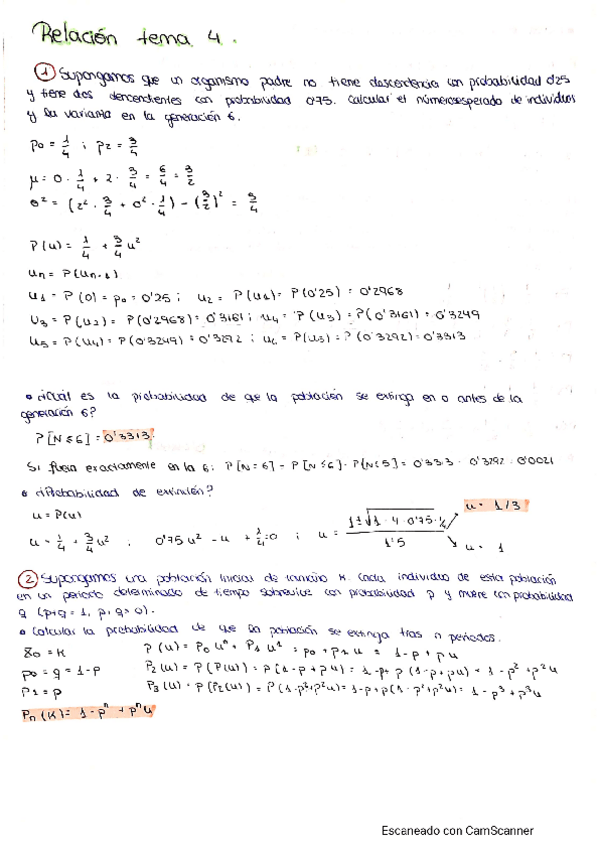 Relación tema 4.
① Supongamos que un organismo padre no tiene descendencia con probabilidad 0'25
y tiene dos descendientes con probabilidad 0'75. Calcular el número esperado de individuos
y la varianza en la generación 6.
p0 = 1/4 ; p2 = 3/4
μ = 0 · 1/4 + 2 · 3/4 = 6/4 = 3/2
σ² = (2² · 3/4 + 0² · 1/4) - (3/2)² = 3/4
P(u) = 1/4 + 3/4 u²
un = P(un-1)
u1 = P(0) = p0 = 0'25 ; u2 = P(u1) = P(0'25) = 0'2968
u3 = P(u2) = P(0'2968) = 0'3161 ; u4 = P(u3) = P(0'3161) = 0'3249
u5 = P(u4) = P(0'3249) = 0'3292 ; u6 = P(u5) = P(0'3292) = 0'3313
• ¿Cuál es la probabilidad de que la población se extinga en o antes de la
generación 6?
P[N ≤ 6] = 0'3313
Si fuera exactamente en la 6: P[N = 6] = P[N ≤ 6] - P[N ≤ 5] = 0'3313 - 0'3292 = 0'0021
• ¿Probabilidad de extinción?
u = P(u)
u = 1/4 + 3/4 u² ; 0'75 u² - u + 1/4 = 0 ; u = (1 ± √(1 - 4 · 0'75 · 1/4)) / 1'5
u = 1/3
u = 1
② Supongamos una población inicial de tamaño K. Cada individuo de esta población
en un periodo determinado de tiempo sobrevive con probabilidad p y muere con probabilidad
q (p+q = 1, p, q > 0).
• Calcular la probabilidad de que la población se extinga tras n periodos.
P(u) = P0 u⁰ + P1 u¹ = p0 + p1 u = 1 - p + pu
p0 = q = 1-p
P2(u) = P(P(u)) = P(1-p+pu) = 1-p+p(1-p+pu) = 1-p²+p²u
P1 = p
P3(u) = P(P2(u)) = P(1-p²+p²u) = 1-p+p(1-p²+p²u) = 1-p³+p³u
Pn(K) = 1-pⁿ+pⁿu
Escaneado con CamScanner